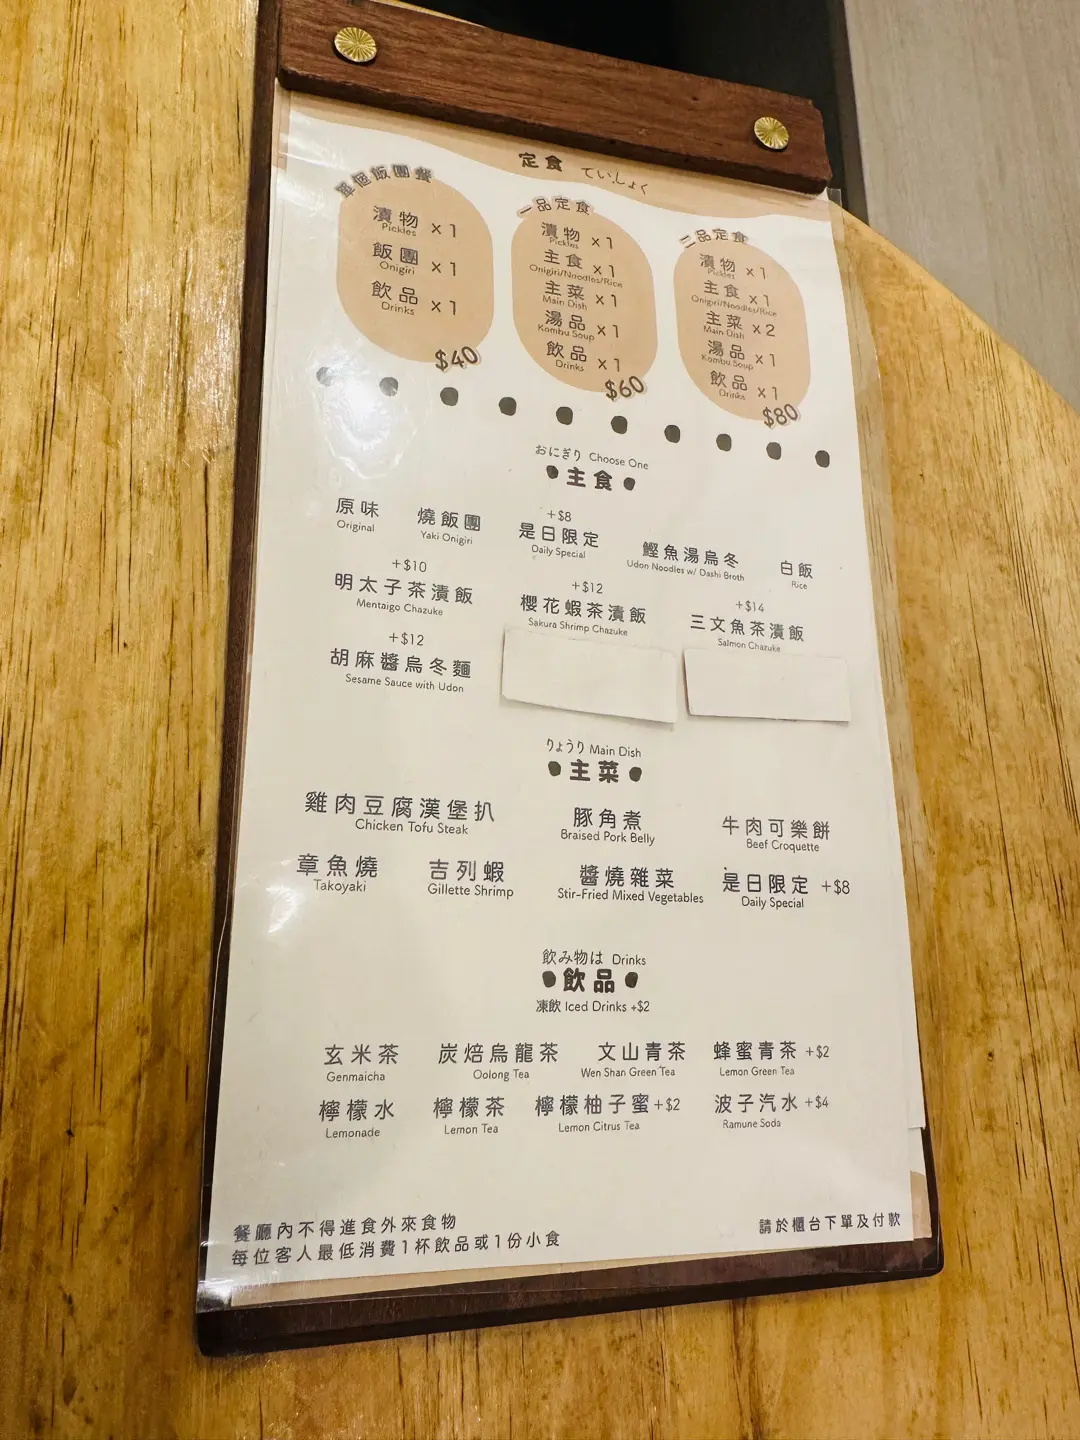 定食 ていしょく
單個飯團餐
漬物 x1
Pickles
飯團 x1
Onigiri
飲品 x1
Drinks
$40
一品定食
漬物 x1
Pickles
主食 x1
Onigiri/Noodles/Rice
主菜 x1
Main Dish
湯品 x1
Kombu Soup
飲品 x1
Drinks
$60
二品定食
漬物 x1
Pickles
主食 x1
Onigiri/Noodles/Rice
主菜 x2
Main Dish
湯品 x1
Kombu Soup
飲品 x1
Drinks
$80
おにぎり Choose One
主食
原味
Original
燒飯團
Yaki Onigiri
+$8
是日限定
Daily Special
鰹魚湯烏冬
Udon Noodles w/ Dashi Broth
白飯
Rice
+$10
明太子茶漬飯
Mentaigo Chazuke
+$12
櫻花蝦茶漬飯
Sakura Shrimp Chazuke
+$14
三文魚茶漬飯
Salmon Chazuke
+$12
胡麻醬烏冬麵
Sesame Sauce with Udon
りょうり Main Dish
主菜
雞肉豆腐漢堡扒
Chicken Tofu Steak
豚角煮
Braised Pork Belly
牛肉可樂餅
Beef Croquette
章魚燒
Takoyaki
吉列蝦
Gillette Shrimp
醬燒雜菜
Stir-Fried Mixed Vegetables
是日限定 +$8
Daily Special
飲み物は Drinks
飲品
凍飲 Iced Drinks +$2
玄米茶
Genmaicha
炭焙烏龍茶
Oolong Tea
文山青茶
Wen Shan Green Tea
蜂蜜青茶 +$2
Lemon Green Tea
檸檬水
Lemonade
檸檬茶
Lemon Tea
檸檬柚子蜜 +$2
Lemon Citrus Tea
波子汽水 +$4
Ramune Soda
餐廳內不得進食外來食物
每位客人最低消費1杯飲品或1份小食
請於櫃台下單及付款